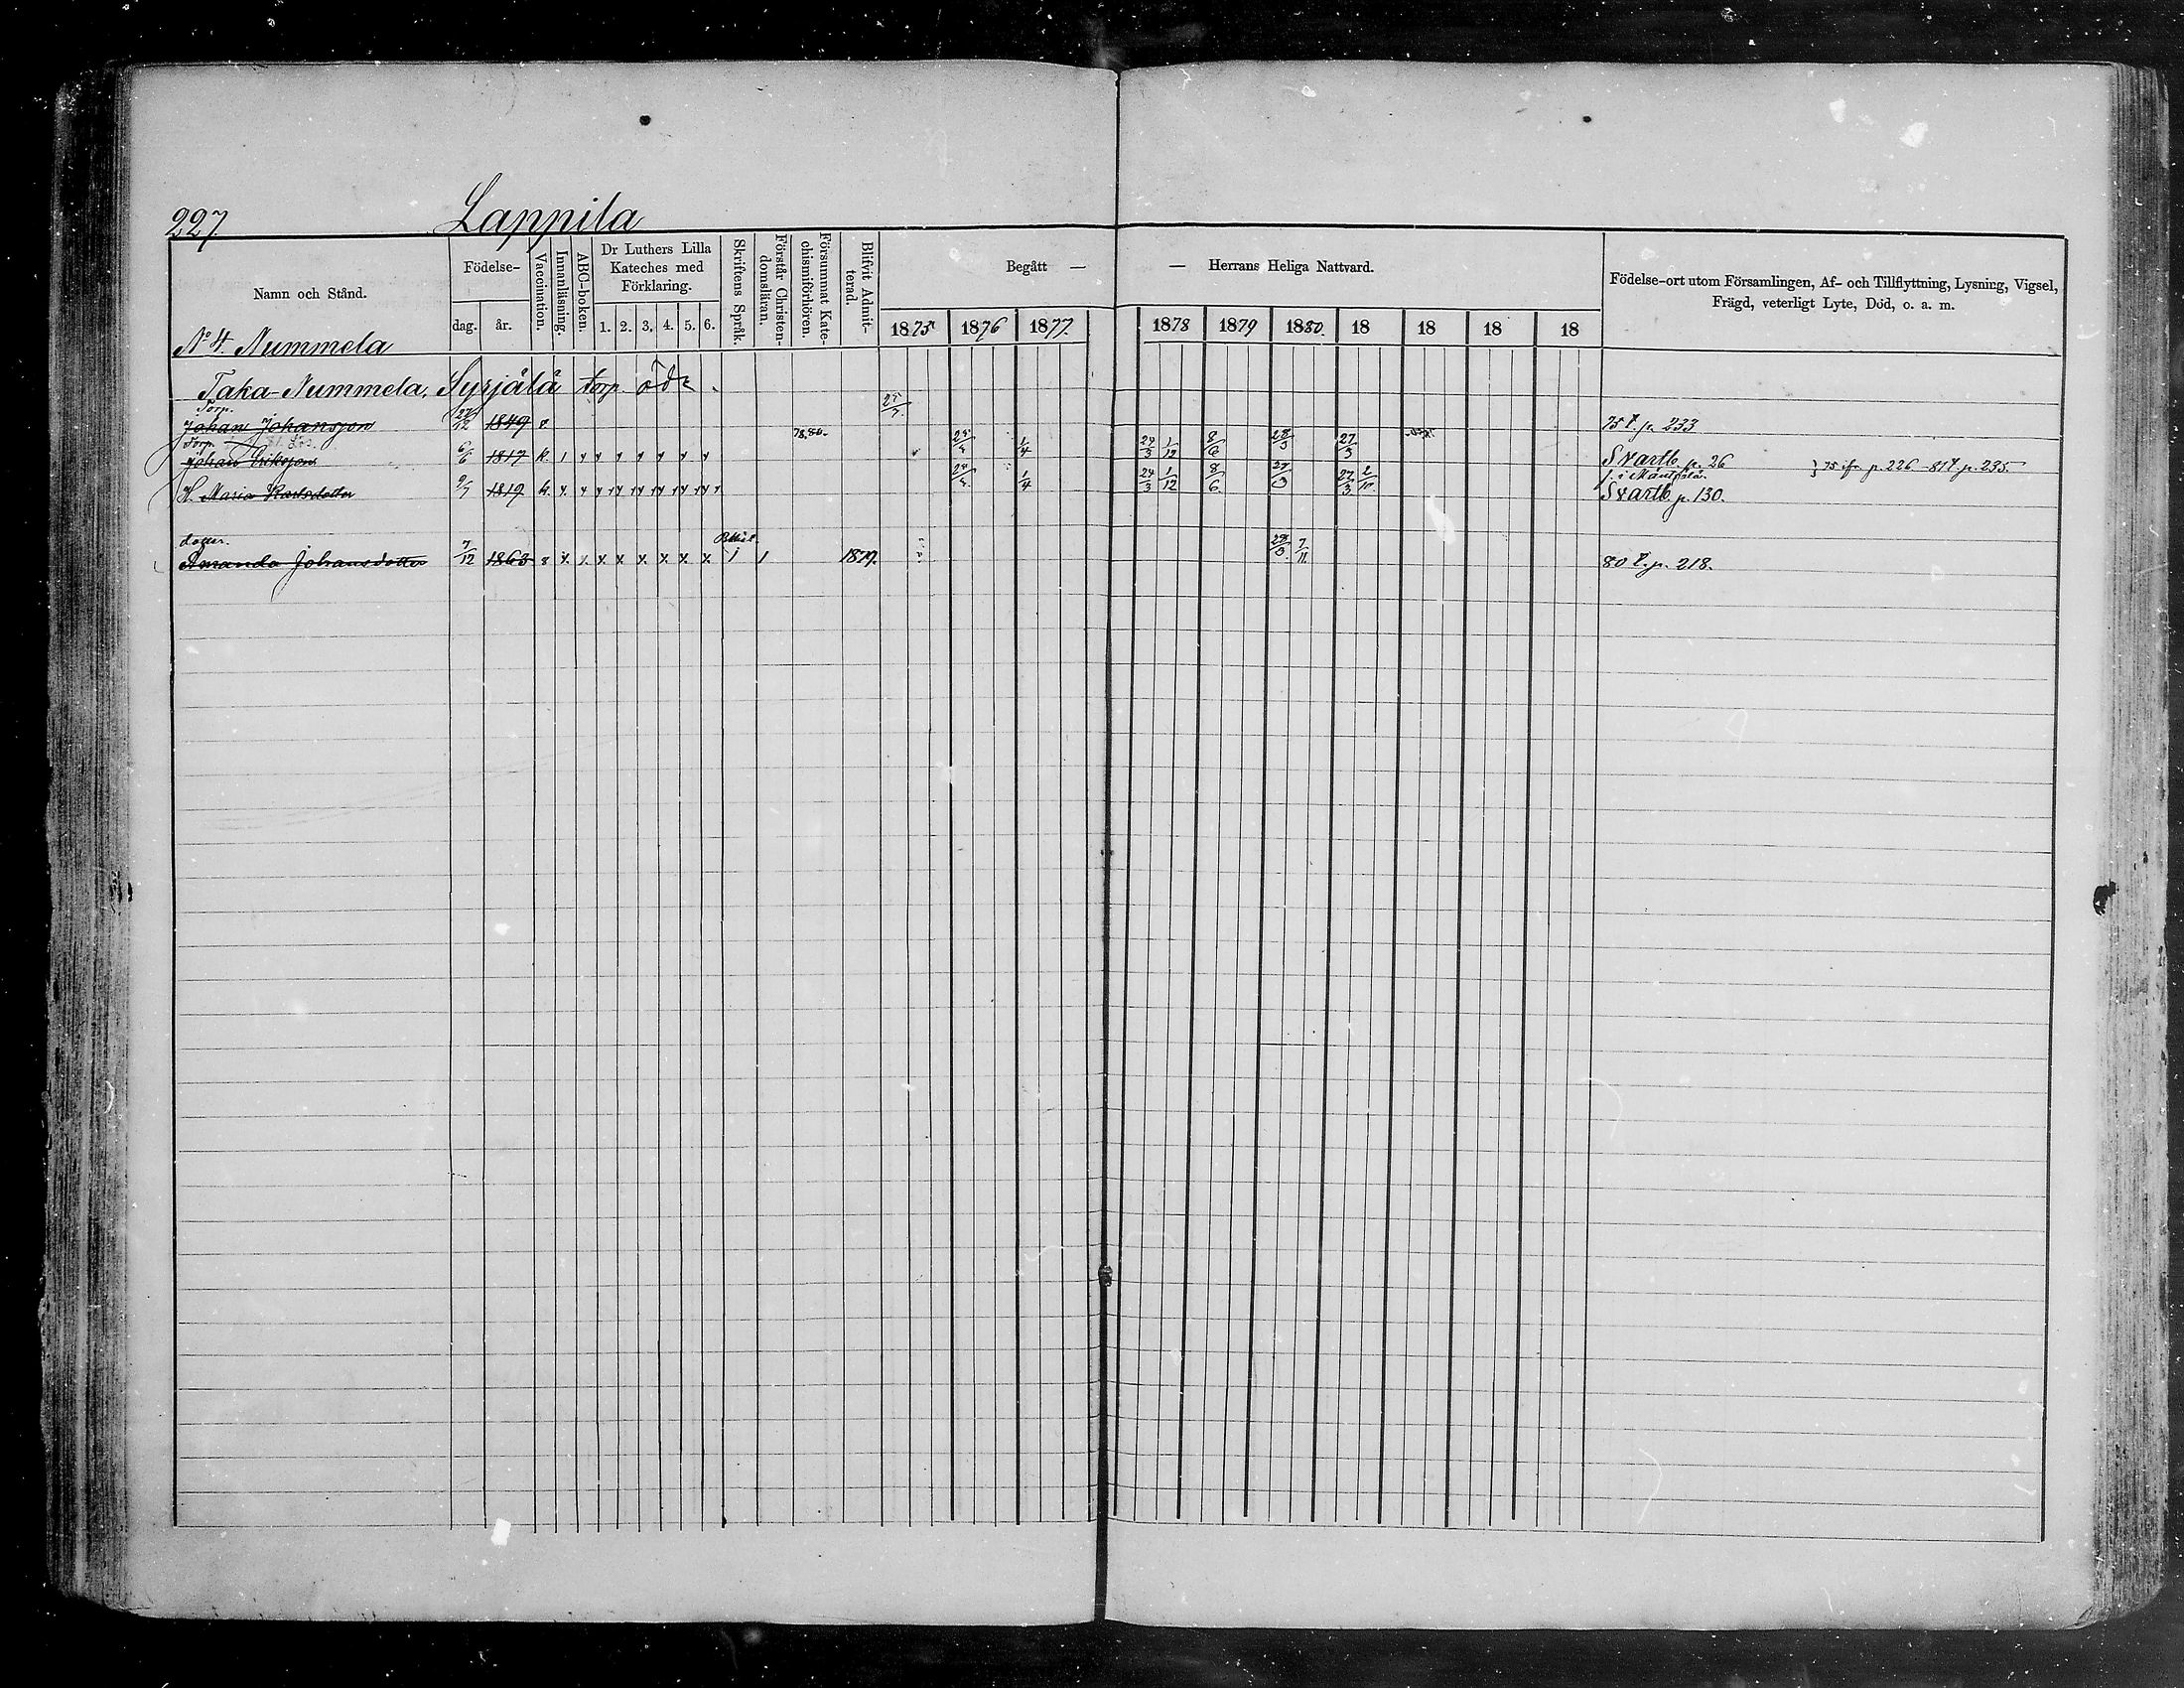 227. Lappila
Namn och Stånd.
Födelse-
dag. år.
Vaccination.
Innanläsning.
ABC-boken.
Dr Luthers Lilla
Kateches med
Förklaring.
1. 2. 3. 4. 5. 6.
Skriftens Språk.
Förstår Christen-
domsläran.
Försummat Kate-
chismiförhören.
Blifvit Admit-
terad.
Begått — — Herrans Heliga Nattvard.
1875 1876 1877. 1878 1879 1880. 18 18 18 18
Födelse-ort utom Församlingen, Af- och Tillflyttning, Lysning, Vigsel,
Frägd, veterligt Lyte, Död, o. a. m.
No 4. Nummela
Taka-Nummela, Syrjälä torp öde.
Torp.
Johan Johansson 27/12 1849 75 t. p. 233
Torp.
Johan Eriksson 6/6 1817 1/4 24/3 1/12 8/6 28/3 27/3 Svartb. p. 26 } 75 ifr. p. 226 - 81 t. p. 235.
H. Maria Karlsdotter 9/7 1819 1/4 24/3 1/12 8/6. 27/3 Svartb. p. 130.
dotter.
Amanda Johansdotter 7/12 1863 1 1 1879. 28/3. 7/11. 80 t. p. 218.